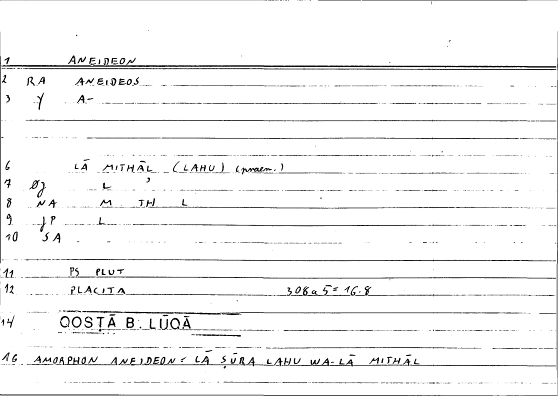 1 ANEIDEON
2 RA ANEIDEOS
3 Y A-
6 LĀ MITHĀL (LAHU) (praem.)
7 Øj L ʾ
8 NA M TH L
9 JP L
10 SA
11 PS PLUT
12 PLACITA 308 a 5 = 16.8
14 QOSṬĀ B. LŪQĀ
16 AMORPHON ANEIDEON = LĀ ṢŪRA LAHU WA-LĀ MITHĀL